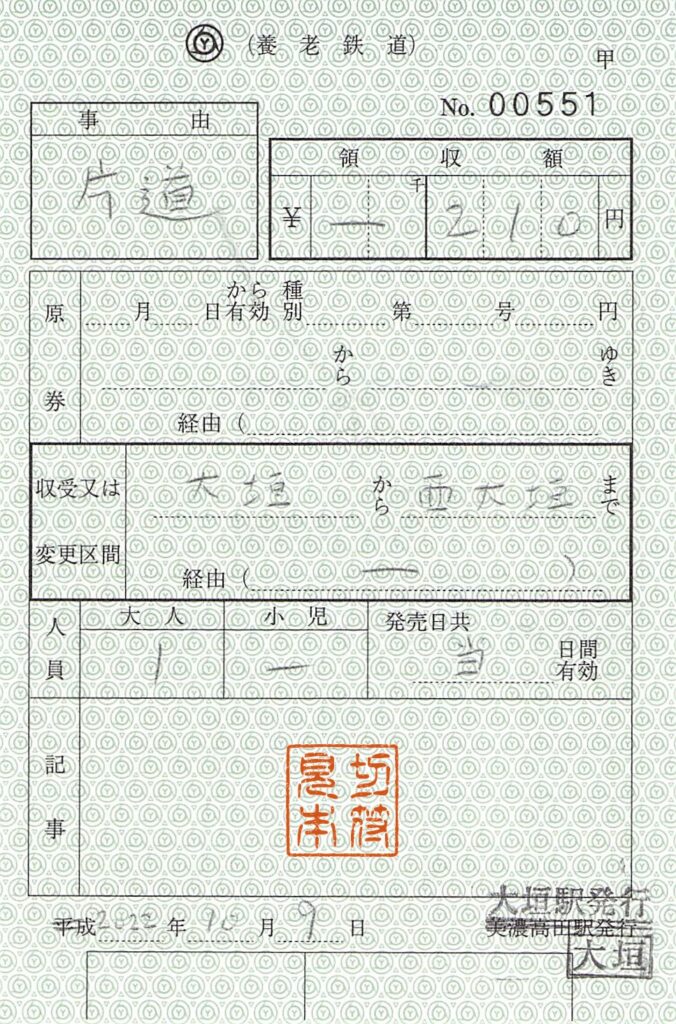 (養老鉄道)
甲
No. 00551
事由
片道
領収額
千
¥ — 210 円
原券
月 日から有効 種別 第 号 円
から ゆき
経由 (
収受又は変更区間
大垣 から 西大垣 まで
経由 ( — )
人員
大人 小児 発売日共
1 — 当 日間有効
記事
切符
見本
大垣駅発行
平成 2022 年 10 月 9 日 美濃高田駅発行
大垣